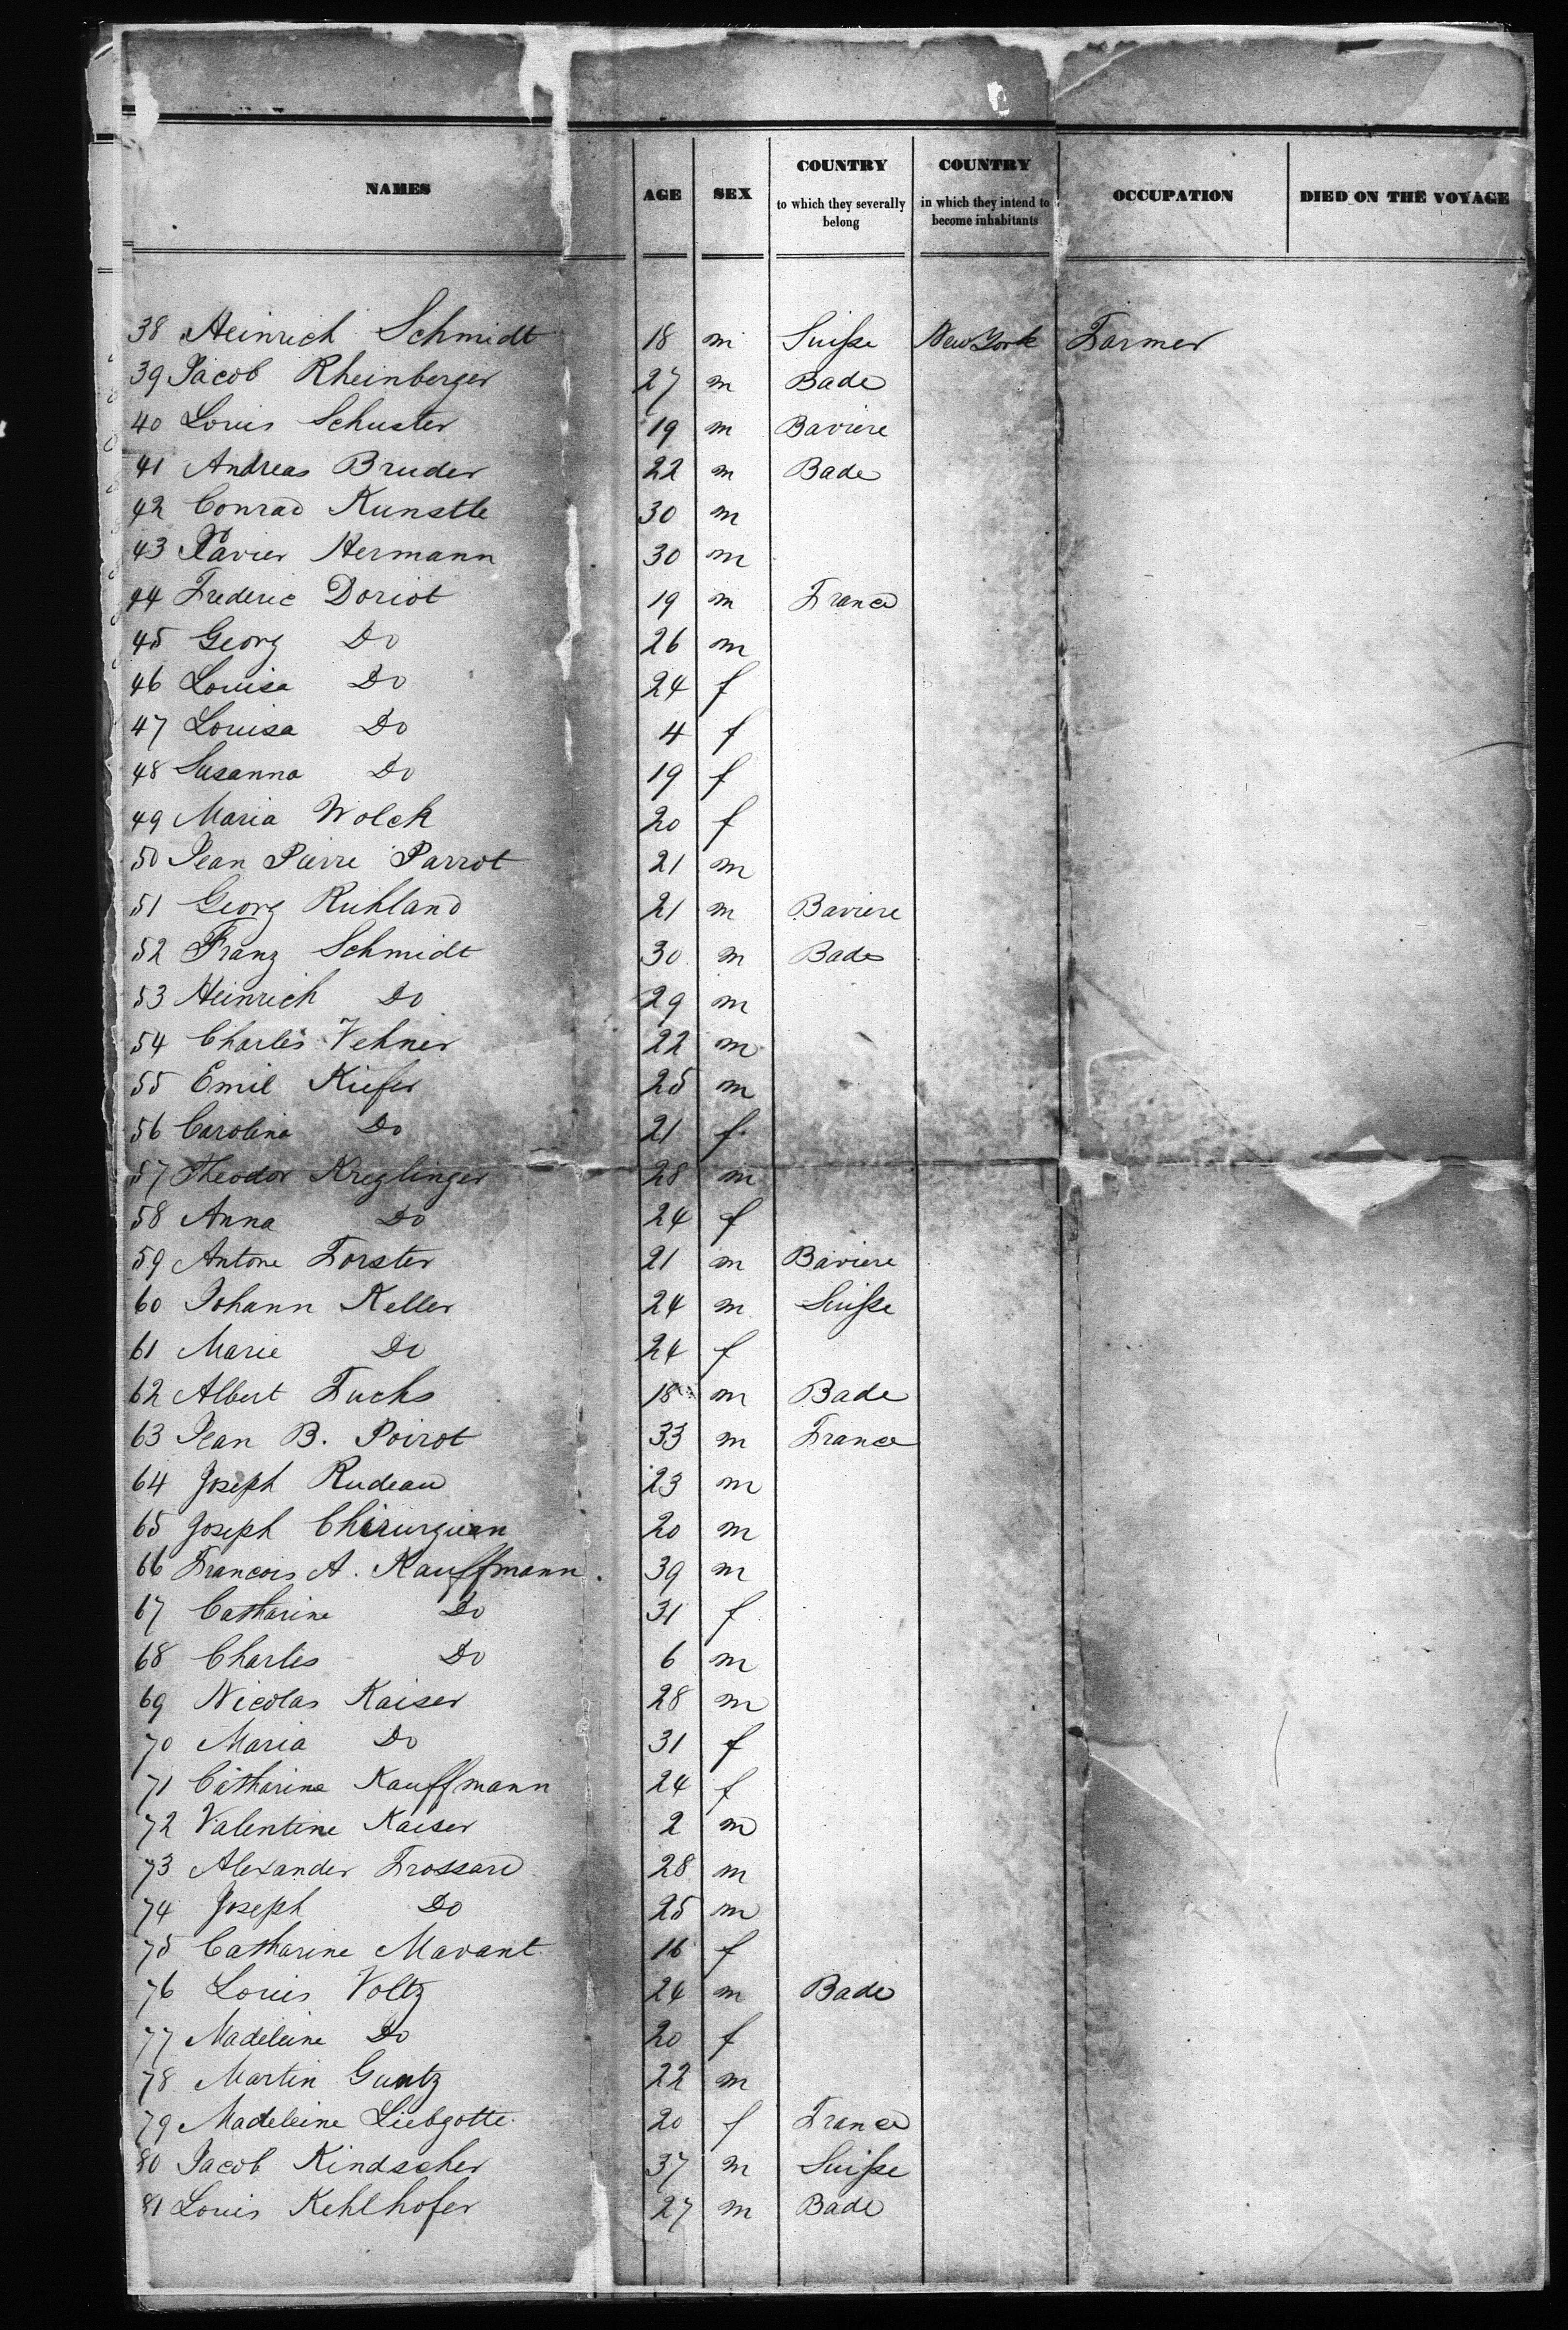 NAMES AGE SEX COUNTRY to which they severally belong COUNTRY in which they intend to become inhabitants OCCUPATION DIED ON THE VOYAGE
38 Heinrich Schmidt 18 m Suisse New York Farmer
39 Jacob Rheinberger 27 m Bade
40 Louis Schuster 19 m Baviere
41 Andreas Bruder 22 m Bade
42 Conrad Kunstle 30 m
43 Xavier Hermann 30 m
44 Frederic Doriot 19 m France
45 Georg Do 26 m
46 Louise Do 24 f
47 Louisa Do 4 f
48 Susanna Do 19 f
49 Maria Wolck 20 f
50 Jean Pierre Parrot 21 m
51 Georg Ruhland 21 m Baviere
52 Franz Schmidt 30 m Bade
53 Heinrich Do 29 m
54 Charles Vehner 22 m
55 Emil Kiefer 25 m
56 Carolina Do 21 f
57 Theodor Kreglinger 28 m
58 Anna Do 24 f
59 Antone Forster 21 m Baviere
60 Johann Keller 24 m Suisse
61 Marie Do 24 f
62 Albert Fuchs 18 m Bade
63 Jean B. Poirot 33 m France
64 Joseph Rudeau 23 m
65 Joseph Chirurgien 20 m
66 Francois A. Kauffmann. 39 m
67 Catharine Do 31 f
68 Charles Do 6 m
69 Nicolas Kaiser 28 m
70 Maria Do 31 f
71 Catharine Kauffmann 24 f
72 Valentine Kaiser 2 m
73 Alexander Frossard 28 m
74 Joseph Do 25 m
75 Catharine Mavant 16 f
76 Louis Voltz 24 m Bade
77 Madeleine Do 20 f
78 Martin Guntz 22 m
79 Madeleine Liebgotte 20 f France
80 Jacob Kindscher 37 m Suisse
81 Louis Kehlhofer 27 m Bade